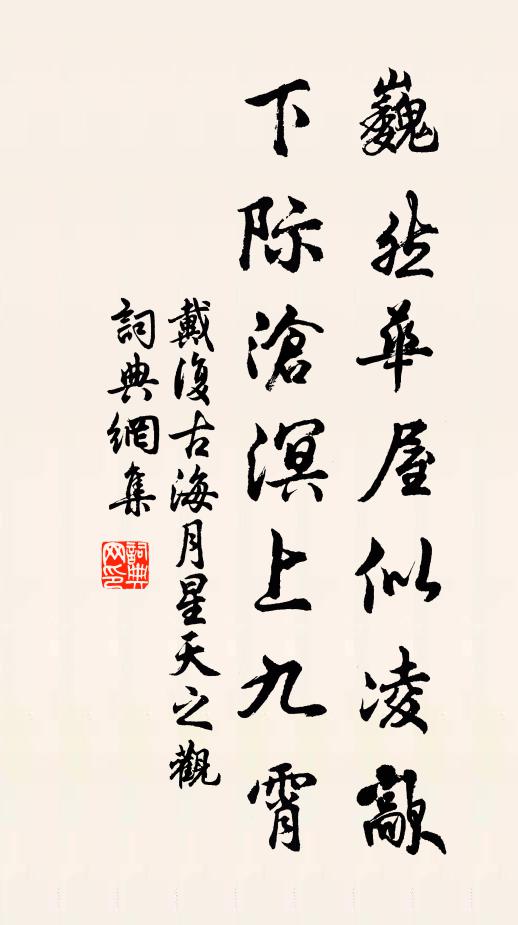 巍然華屋似凌歊
下际滄溟上九霄
戴復古海月星天之觀
詞典網集
詞典
网印